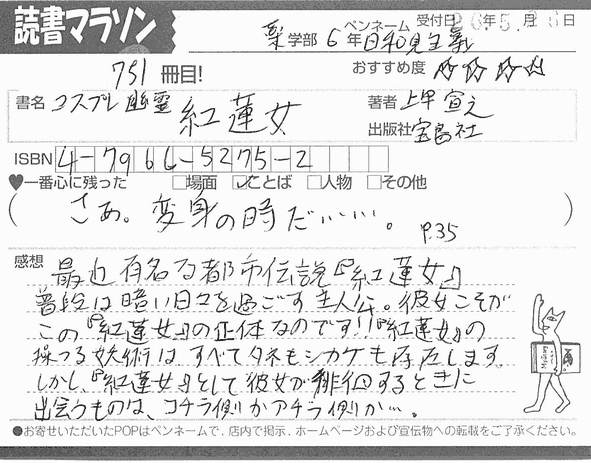 読書マラソン
薬学部 6年 ペンネーム 日和見主義 受付日 26年5月26日
751冊目! おすすめ度 ☆☆☆☆
書名 コスプレ幽霊 紅蓮女 著者 上甲宣之
出版社 宝島社
ISBN 4-7966-5275-2
♥一番心に残った □場面 ☑ことば □人物 □その他
(さあ。変身の時だぃぃぃ。 P.35)
感想 最近有名な都市伝説『紅蓮女』
普段は暗い日々を過ごす主人公。彼女こそが
この『紅蓮女』の正体なのです!!『紅蓮女』の
操つる妖術は、すべてタネもシカケも存在します。
しかし、『紅蓮女』として彼女が徘徊するときに
出会うものは、コチラ側かアチラ側か…。
●お寄せいただいたPOPはペンネームで、店内で掲示、ホームページおよび宣伝物への転載をご了承ください。